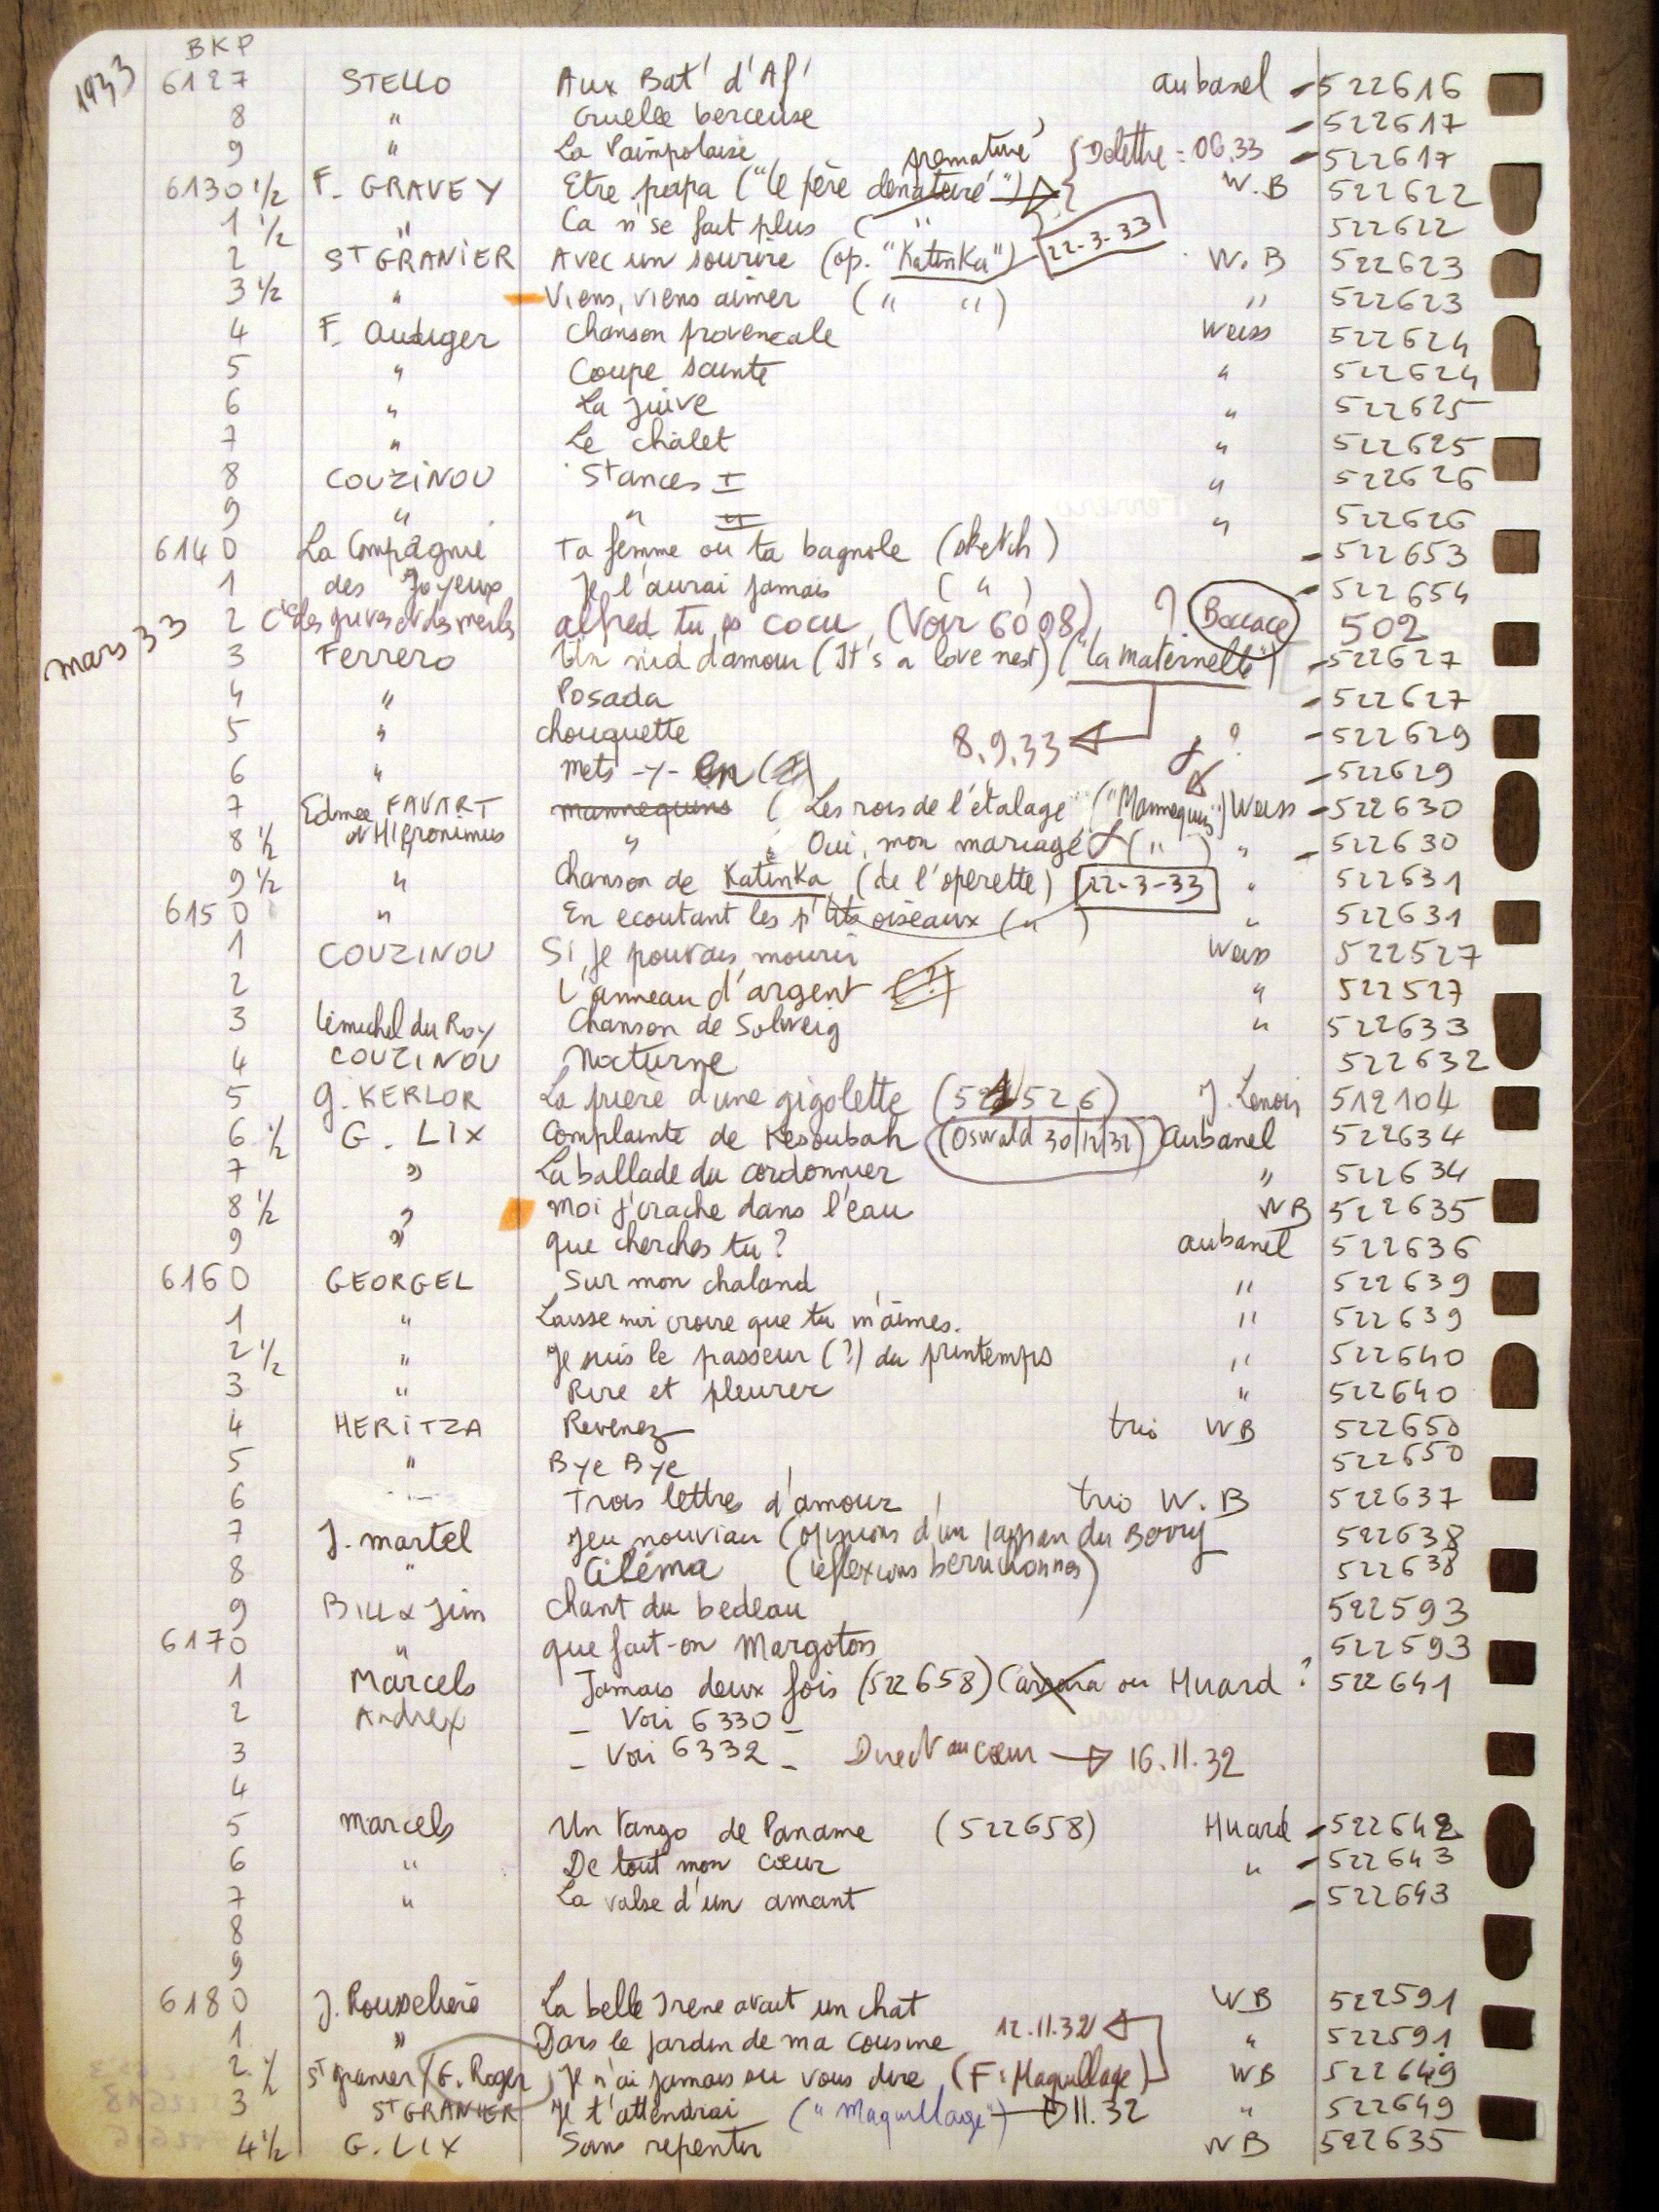 1933 BKP
6127 STELLO Aux Bat' d'Af' aubanel - 522616
8 " Cruelle berceuse - 522617
9 " La Paimpolaise - 522617
prematuré { Delettre = 06.33
6130 1/2 F. GRAVEY Etre papa ("le père denaturé") W.B 522622
1 1/2 " Ca n'se fait plus ( " 522622
2 ST GRANIER Avec un sourire (op. "Katinka") 22-3-33 W.B 522623
3 1/2 " Viens, viens aimer ( " " ) " 522623
4 F. Audiger Chanson provencale Weiss 522624
5 " Coupe sainte " 522624
6 " La Juive " 522625
7 " Le chalet " 522625
8 COUZINOU Stances I " 522626
9 " " II " 522626
6140 La Compagnie Ta femme ou ta bagnole (sketch) - 522653
1 des Joyeux Je l'aurai jamais ( " ) - 522654
2 Cie des grives et des merles alfred tu es cocu (Voir 6098) ? Boccace 502
mars 33
3 Ferrero Un nid d'amour (It's a love nest) ("la maternelle") - 522627
4 " Posada - 522627
5 " chouquette 8.9.33 ? - 522629
6 " Mets-y-en - 522629
7 Edmee FAVART mannequins ( Les rois de l'étalage ("Mannequins") Weiss - 522630
8 1/2 et Hieronimus " Oui, mon mariage ( " ) " - 522630
9 1/2 " Chanson de Katinka (de l'operette) 22-3-33 " 522631
6150 " En ecoutant les p'tits oiseaux ( " ) " 522631
1 COUZINOU Si je pouvais mourir Weiss 522527
2 L'anneau d'argent " 522527
3 Lemichel du Roy Chanson de Solveig " 522633
4 COUZINOU Nocturne 522632
5 G. KERLOR La prière d'une gigolette J. Lenoir 512104
6 1/2 G. LIX Complainte de Kesoubah (Oswald 30/12/32) Aubanel 522634
7 " La ballade du cordonnier " 522634
8 1/2 " Moi j'crache dans l'eau WB 522635
9 "? que cherches tu? aubanel 522636
6160 GEORGEL Sur mon chaland " 522639
1 " Laisse moi croire que tu m'aimes. " 522639
2 1/2 " Je suis le passeur (?) du printemps " 522640
3 " Rire et pleurer " 522640
4 HERITZA Revenez trio WB 522650
5 " Bye Bye 522650
6 Trois lettres d'amour trio W.B 522637
7 J. martel Jeu nouviau (opinions d'un du Berry 522638
8 " Ciléma (réflexions berrichonnes) 522638
9 Bill & Jim Chant du bedeau 522593
6170 " que fait-on Margoton 522593
1 Marcels Jamais deux fois (522658) Carrara ou Huard ? 522641
2 Andrex - Voir 6330 -
3 - Voir 6332 - Direct au cœur → 16.11.32
4
5 Marcels Un tango de Paname (522658) Huard - 522642
6 " De tout mon cœur " - 522643
7 " La valse d'un amant - 522643
8
9
6180 J. Rousselière La belle Irene avait un chat WB 522591
1 " Dans le jardin de ma cousine 12.11.32 " 522591
2 1/2 St granier / G. Roger Je n'ai jamais su vous dire (F: Maquillage) WB 522649
3 ST GRANIER Je t'attendrai ("Maquillage") → 11.32 " 522649
4 1/2 G. LIX Sans repentir WB 522635